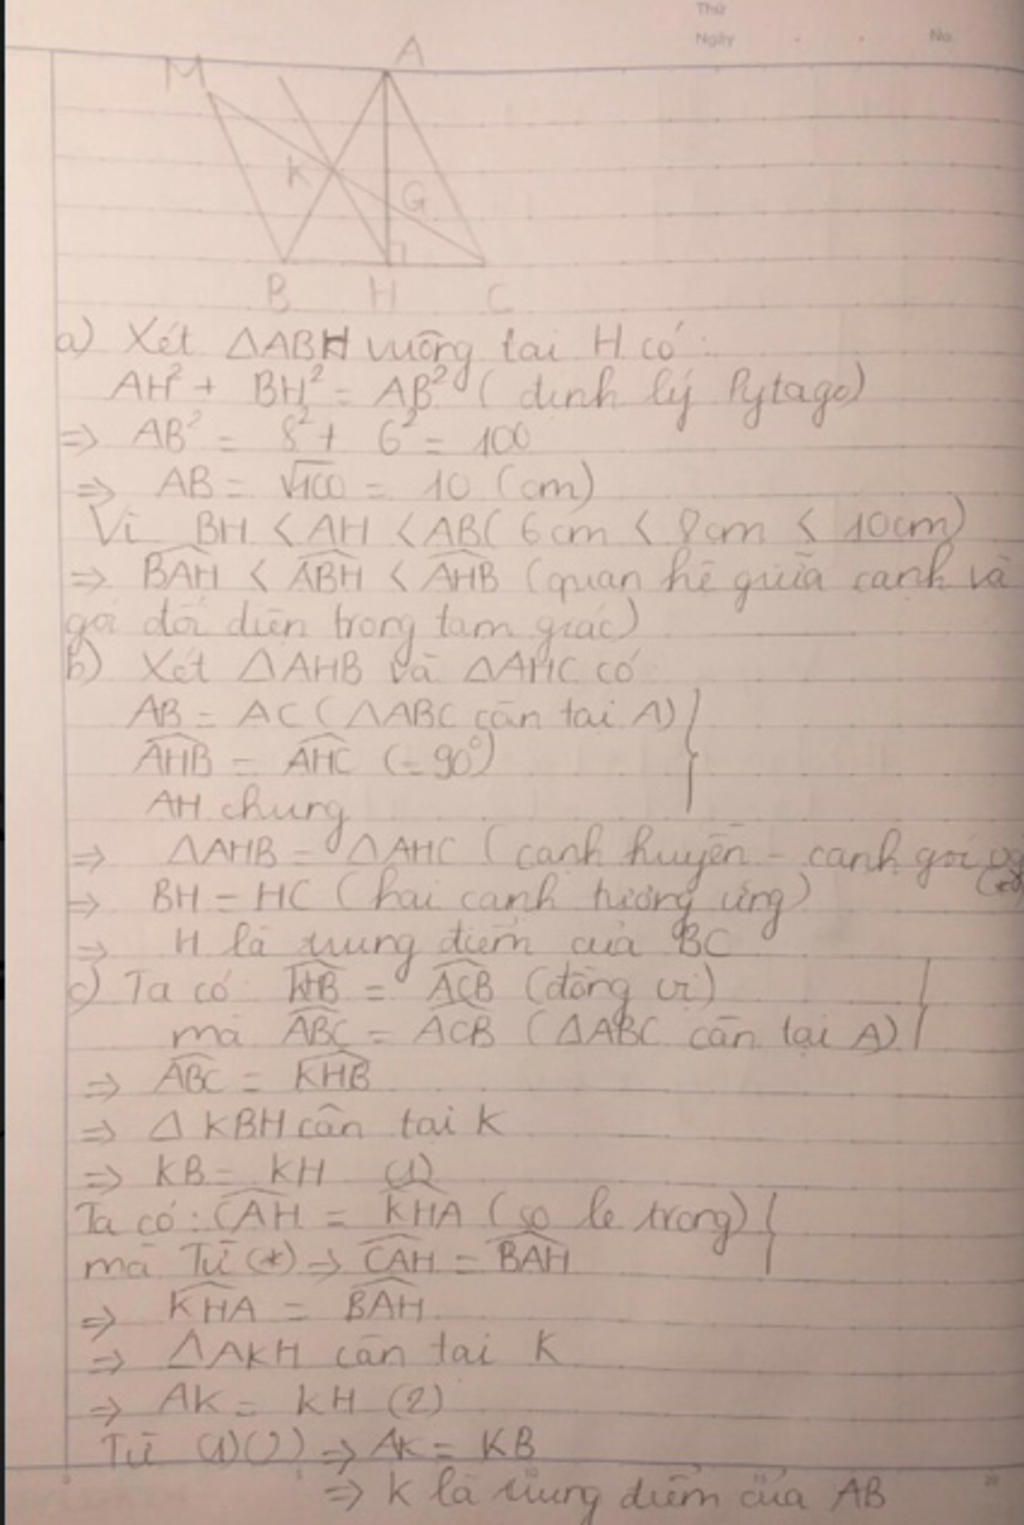 Thứ
Ngày No.
M A
K G
B H C
a) Xét ΔABH vuông tại H có:
AH² + BH² = AB² (định lý Pytago)
=> AB² = 8² + 6² = 100
=> AB = √100 = 10 (cm)
Vì BH < AH < AB (6cm < 8cm < 10cm)
=> BAH < ABH < AHB (quan hệ giữa cạnh và
góc đối diện trong tam giác)
b) Xét ΔAHB và ΔAHC có
AB = AC (ΔABC cân tại A)
AHB = AHC (= 90°)
AH chung
=> ΔAHB = ΔAHC (cạnh huyền - cạnh góc vg)
(*)
=> BH = HC (hai cạnh tương ứng)
=> H là trung điểm của BC
c) Ta có KHB = ACB (đồng vị)
mà ABC = ACB (ΔABC cân tại A)
=> ABC = KHB
=> Δ KBH cân tại K
=> KB = KH (1)
Ta có: CAH = KHA (so le trong)
mà Từ (*) => CAH = BAH
=> KHA = BAH
=> ΔAKH cân tại K
=> AK = KH (2)
Từ (1)(2) => AK = KB
=> K là trung điểm của AB